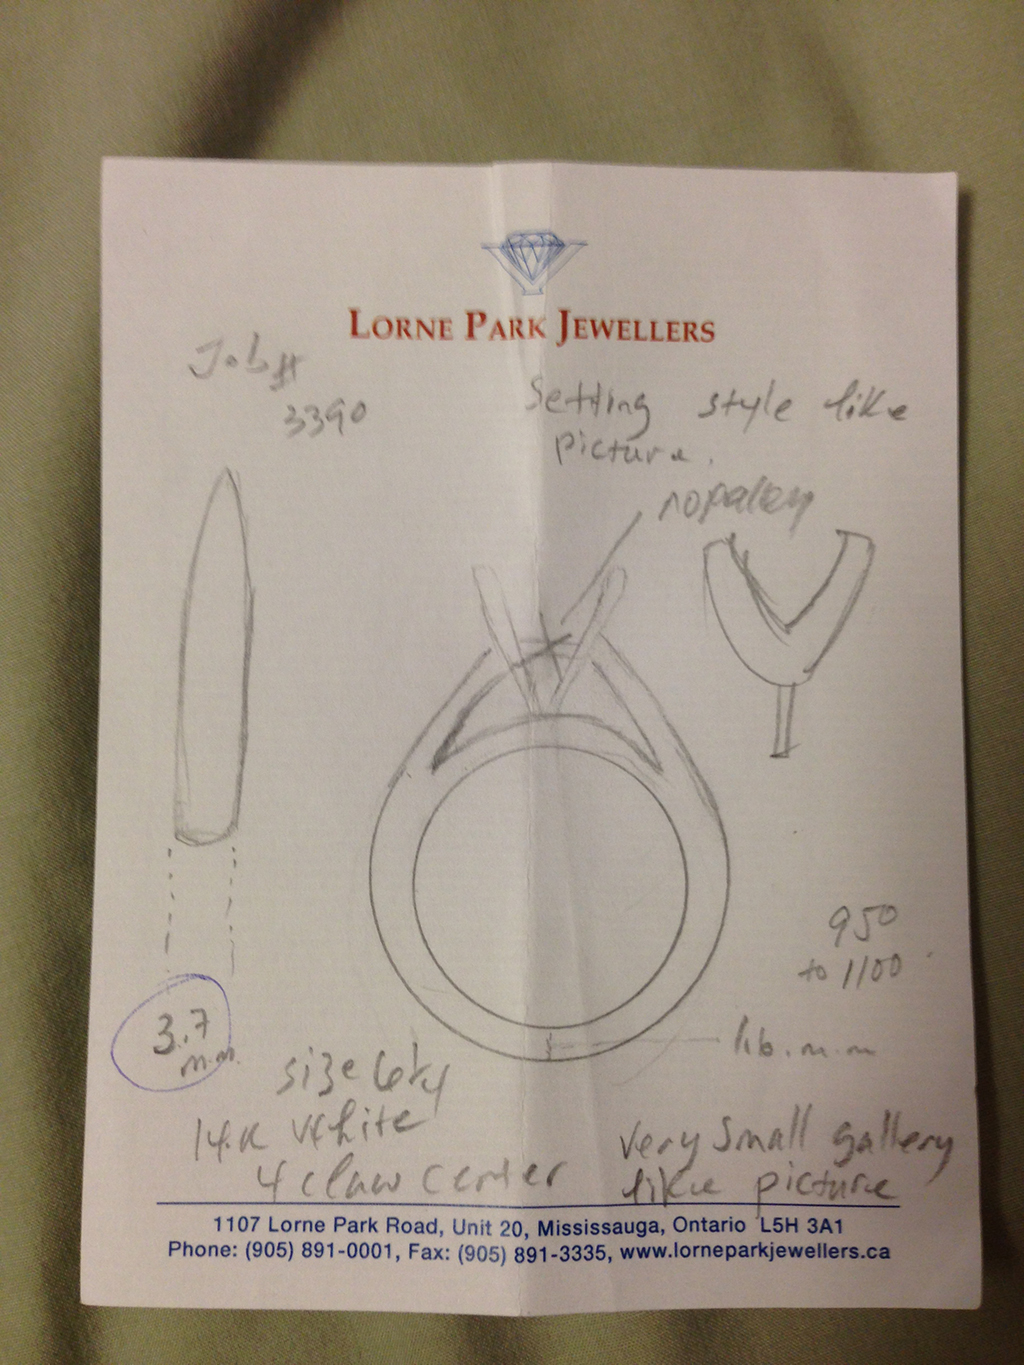 LORNE PARK JEWELLERS
Job #
3390
Setting style like
picture.
950
to 1100
3.7
m.m.
1.6.m.m
size 6 1/4
14.K White
4 claw center
very small gallery
like picture
1107 Lorne Park Road, Unit 20, Mississauga, Ontario L5H 3A1
Phone: (905) 891-0001, Fax: (905) 891-3335, www.lorneparkjewellers.ca